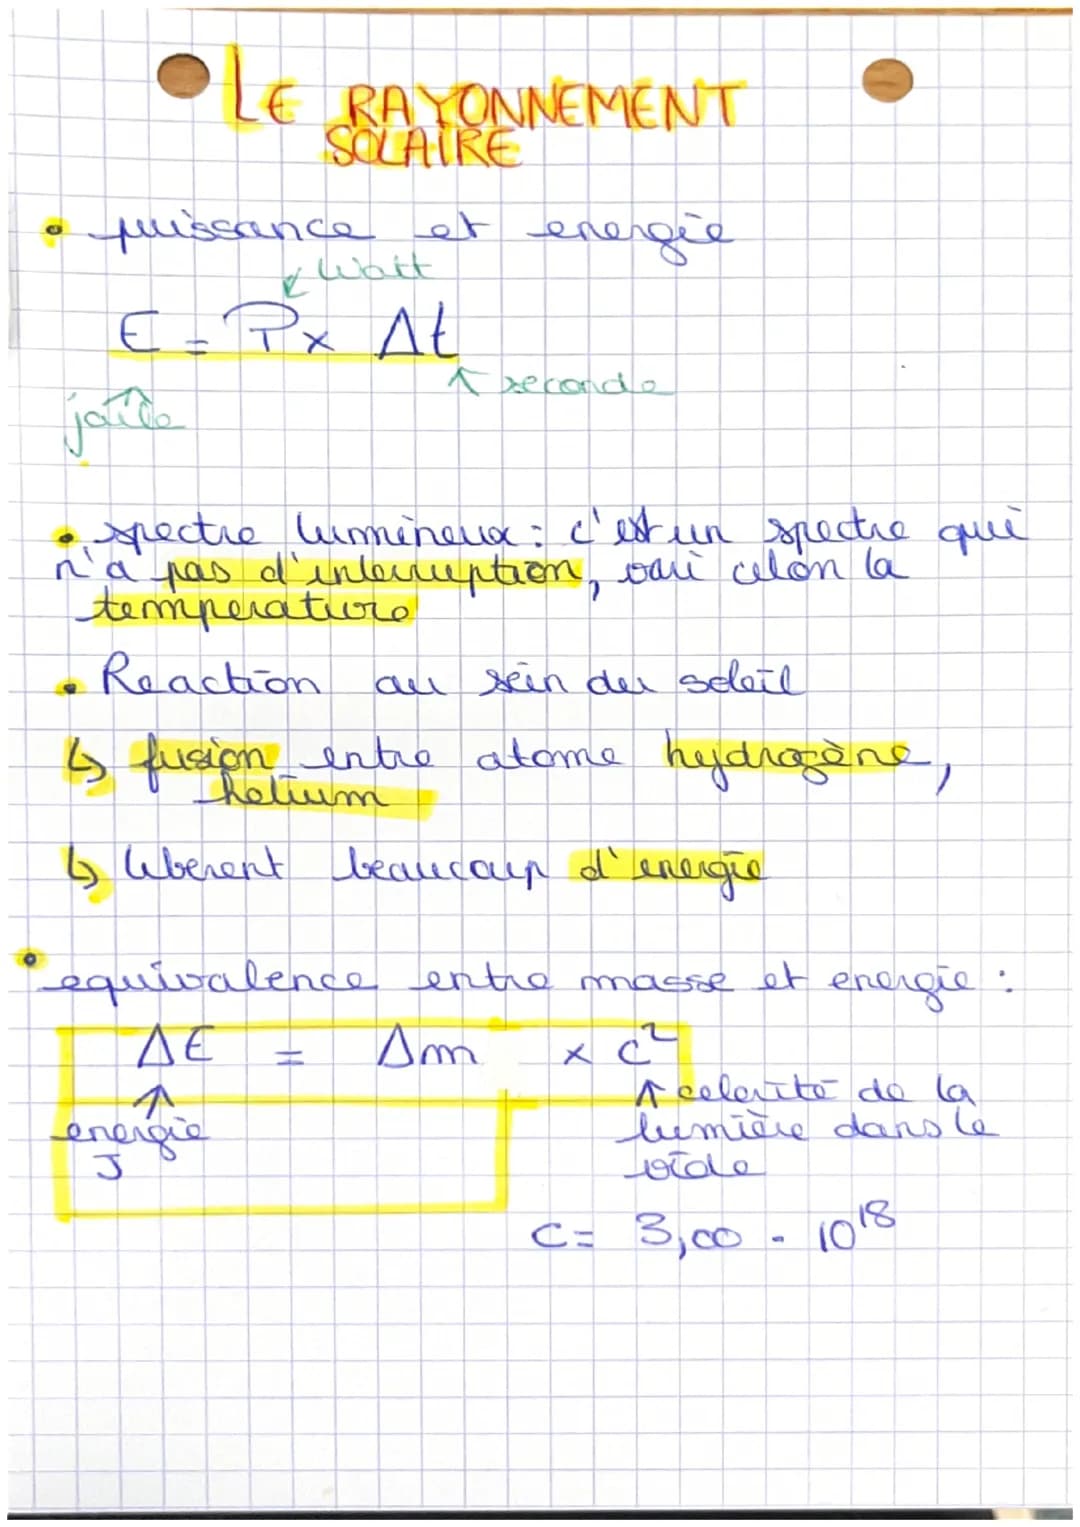 LE RAYONNEMENT
SOLAIRE
• puissance et energie
↙ Watt
E = P x Δt
↑ seconde
joule
• spectre lumineux : c'est un spectre qui
n'a pas d'interruption, vari celon la
temperature
• Reaction au sein du soleil
↳ fusion entre atome hydrogène,
helium
↳ liberent beaucoup d'energie
• equivalence entre masse et energie :
ΔE = Δm x c²
↑ energie J
↑ celerité de la
lumière dans le
vide
C = 3,00 . 10¹⁸